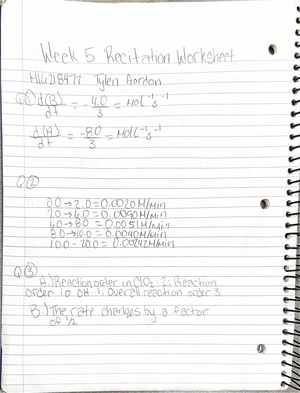 Week 5 Recitation Worksheet
Tylen Gordon
Q① d(B)/dt = -4.0/3 = mol L⁻¹ s⁻¹
d(A)/dt = -8.0/3 = mol L⁻¹ s⁻¹
Q②
0.0 → 2.0 = 0.0020 M/min
2.0 → 6.0 = M/min
6.0 → 8.0 = 0.0051 M/min
8.0 → 10.0 = 0.0040 M/min
10.0 - 20.0 = 0.00242 M/min
Q③
A.) Reaction order in ClO₂: 2; Reaction
order in OH⁻ 1; Overall reaction order 3
B.) The rate changes by a factor
of 1/2